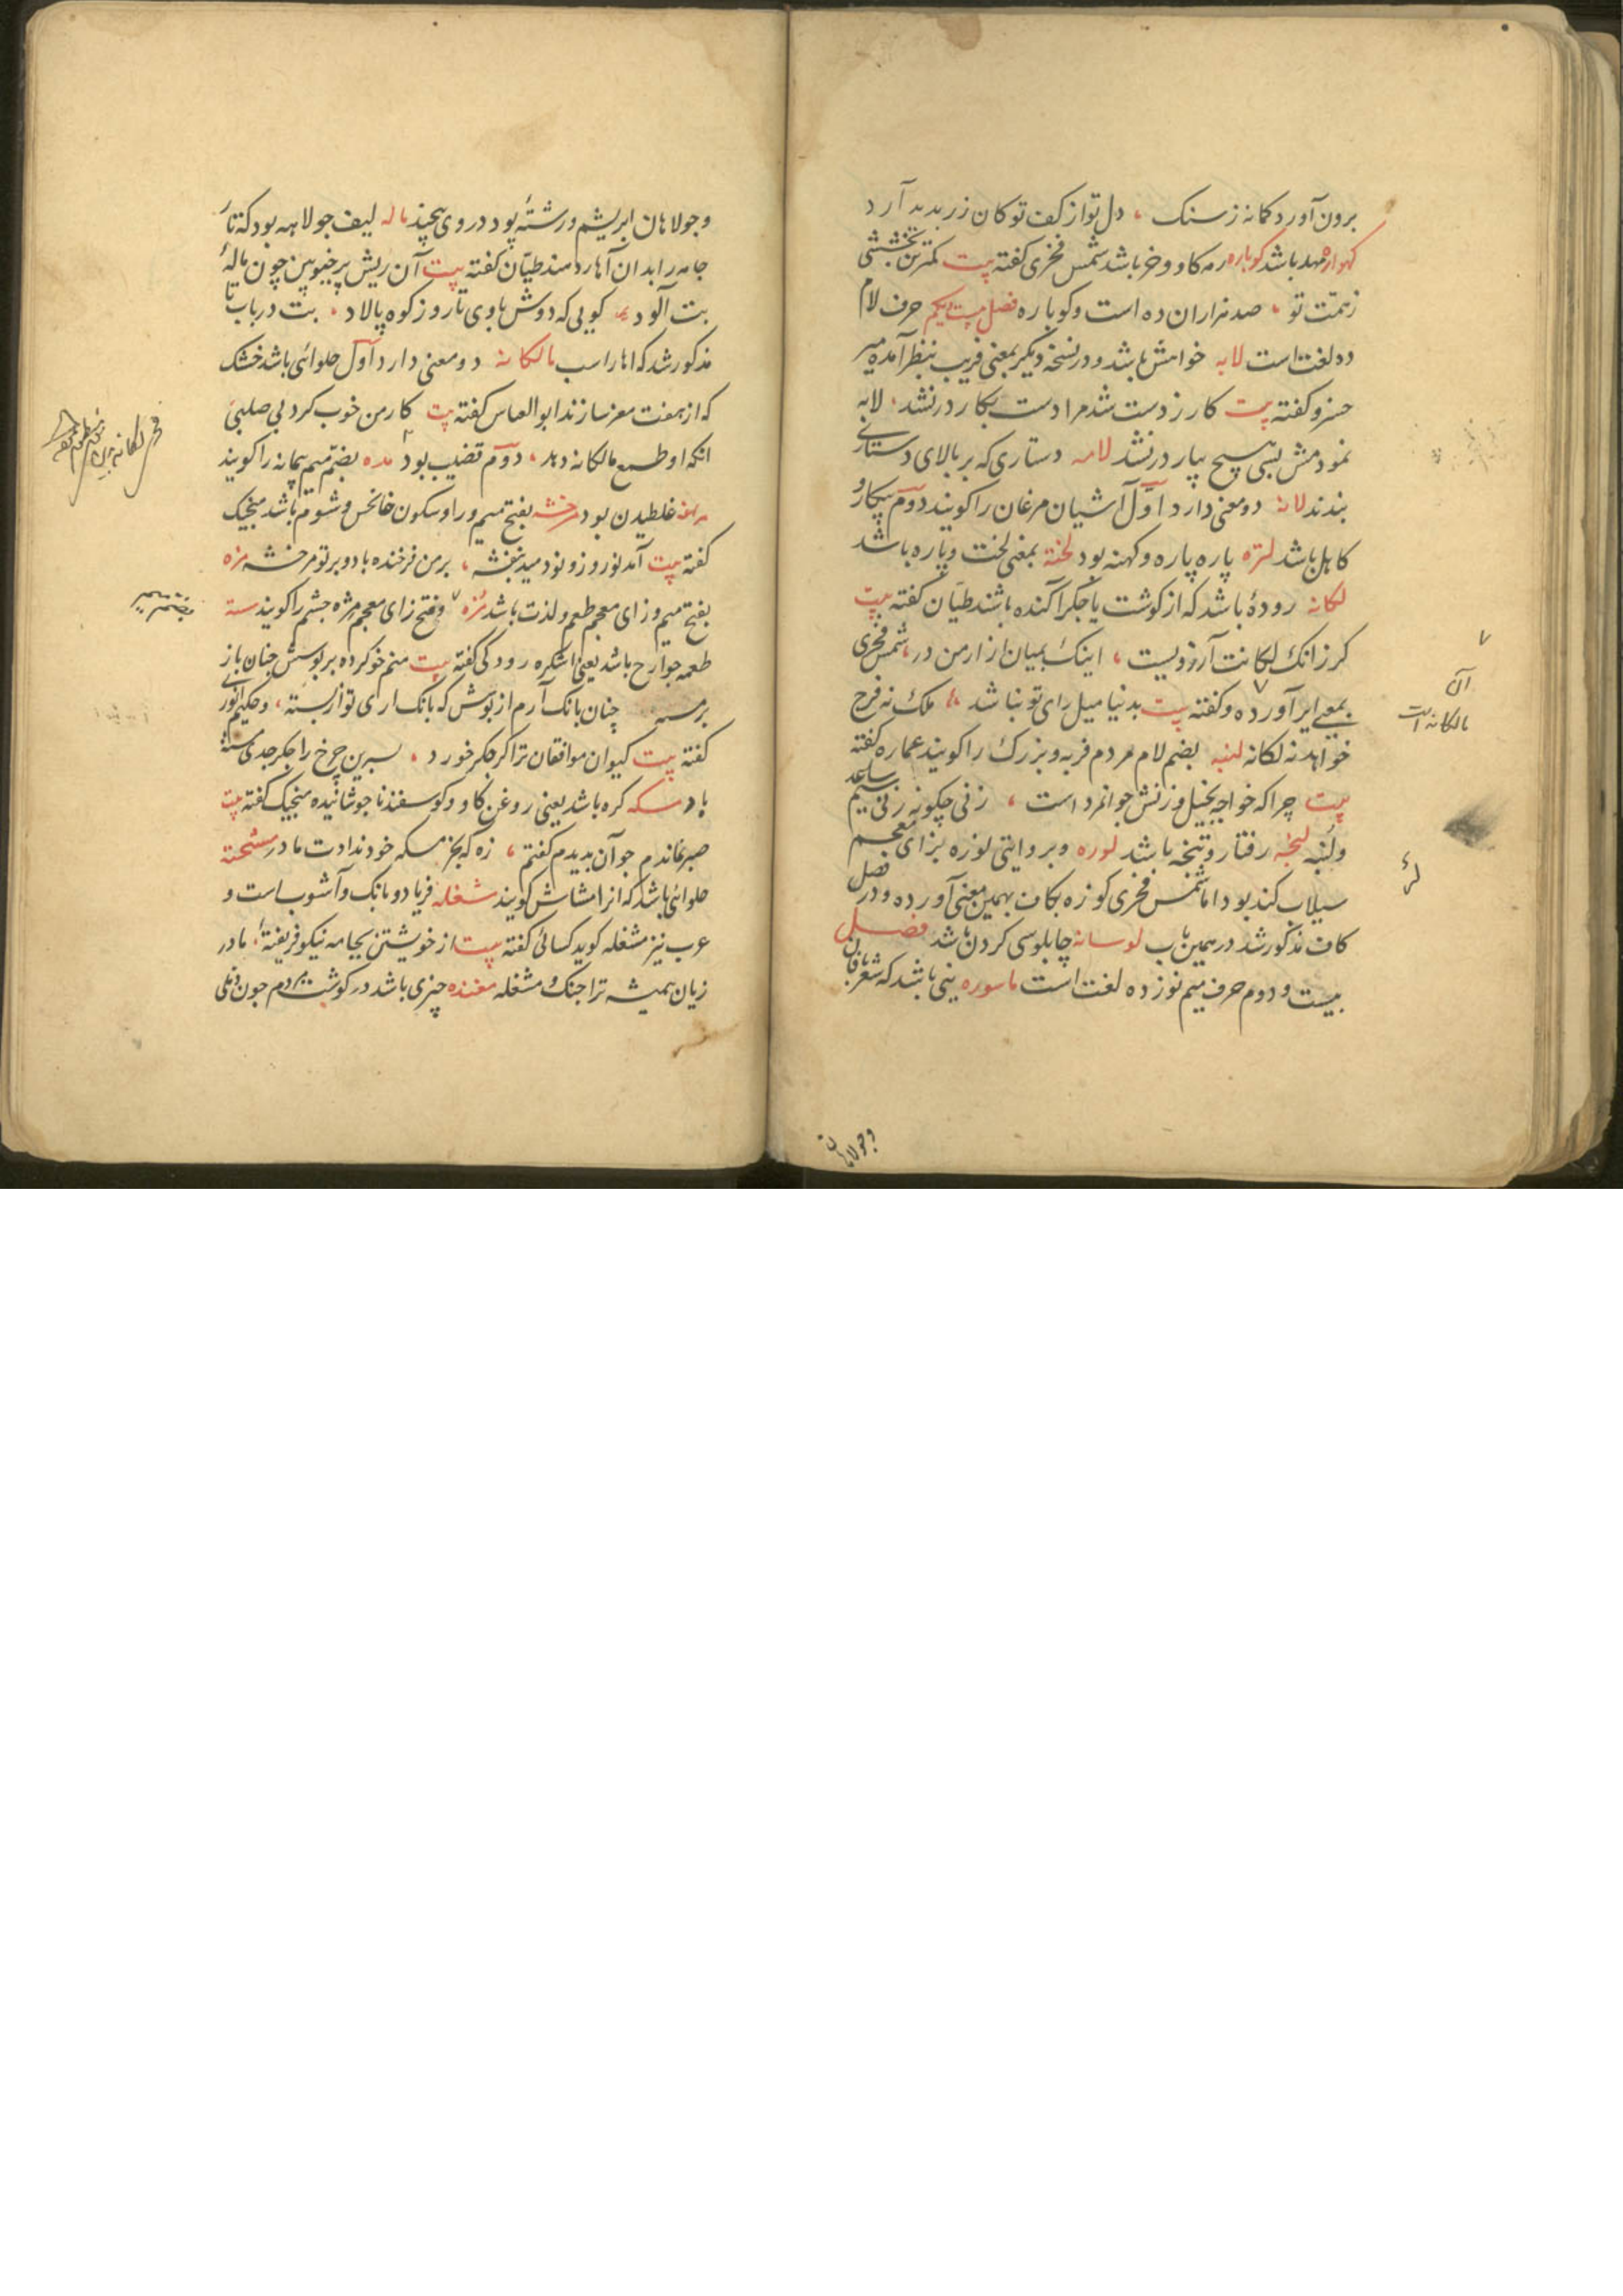 برون آورد کمانه ز سنک ، دل تو از کف تو کان زر بدید آرد
کهواره مهد باشد کوباره رمه کاو و خر باشد شمس فخری کفته بیت کمترین بخششی
ز همّت تو ، صد هزاران ده است و کوباره فصل بیست یکم حرف لام
ده لغت است لابه خواهش باشد و در نسخه دیکر بمعنی فریب بنظر آمده میر
خسرو کفته بیت کار ز دست شد مرا دست بکار در نشد ، لابه
نمودمش بسی هیچ بیار در نشد لامه دستاری که بر بالای دستاری
بندند لانه دو معنی دارد اوّل آشیان مرغان را کویند دوم بیکار و
کاهل باشد لتره پاره پاره و کهنه بود لخته بمعنی لخت و پاره باشد
لکانه رودهٔ باشد که از کوشت یا جکر آکنده باشند طیّان کفته بیت
کر زانک لکانت آرزویست ، اینک بمیان ازار من در ، شمس فخری
بمعنی ایر آورده و کفته بیت بدنیا میل رای تو نباشد ، ملک نه فرج
خواهد نه لکانه لنبه بضم لام مردم فربه و بزرک را کویند عماره کفته
بیت چرا که خواجه بخیل و زنش جوانمرد است ، زنی چکونه زنی سیم ساعد
و لنبه لنجه رفتار و تنجه باشد لوره و بروایتی لوزه بزای معجم
سیلاب کند بود اما شمس فخری کوزه بکاف بهمین معنی آورده و در فصل
کاف مذکور شد در همین باب لوسانه چابلوسی کردن باشد فصل
بیست و دوم حرف میم نوزده لغت است ماسوره نیی باشد که شعربافان
آن
مالکانه است
وجولاهان
وجولاهان ابریشم و رشتهٔ پود در وی پیچند ماله لیف جولاهه بود که تار
جامه را بدان آهار دهند طیّان کفته بیت آن ریش پر خیو بین چون مالهٔ
بت آلود ، کویی که دوش باوی تا روز کوه پالاد ، بت در باب تا
مذکور شد که اهار است مالکانه دو معنی دارد اوّل حلوائی باشد خشک
که از هفت مغز سازند ابوالعباس کفته بیت کار من خوب کرد بی صلتی
انکه او طمع مالکانه دهد ، دوّم قضیب بود مده بضم میم پیمانه را کویند
غلطیدن بود مرخشه بفتح میم و را و سکون خا نحس و شوم باشد منجیک
کفته بیت آمد نوروز و نو دمید بنفشه ، بر من فرخنده باد و بر تو مرخشه مزه
بفتح میم و زای معجم طعم و لذت باشد مژه و فتح زای معجم مژه چشم را کویند مسته
طعمه جوارح باشد یعنی اشکره رودکی کفته بیت منم خو کرده بر بوسش چنان باز
بر مسته چنان بانک آرم از بوسش که بانک اری تو از بسته ، و حکیم انوری
کفته بیت کیوان موافقان ترا کر جکر خورد ، نسرین چرخ را جکر جدی مسته
باد مسکه کره باشد یعنی روغن کاو و کوسفند نا جوشانیده منجیک کفته بیت
صبر نماندم جو آن بدیدم کفتم ، زه که بجز مسکه خود ندادت مادر مشخته
حلوائی باشد که انرا مشاش کویند مشغله فریاد و بانک و آشوب است و
عرب نیز مشغله کوید کسائی کفته بیت از خویشتن بجامه نیکو فریفتهٔ ، مادر
زیان همیشه ترا جنک و مشغله مغنده چیزی باشد در کوشت مردم چون دملی
بضم میم